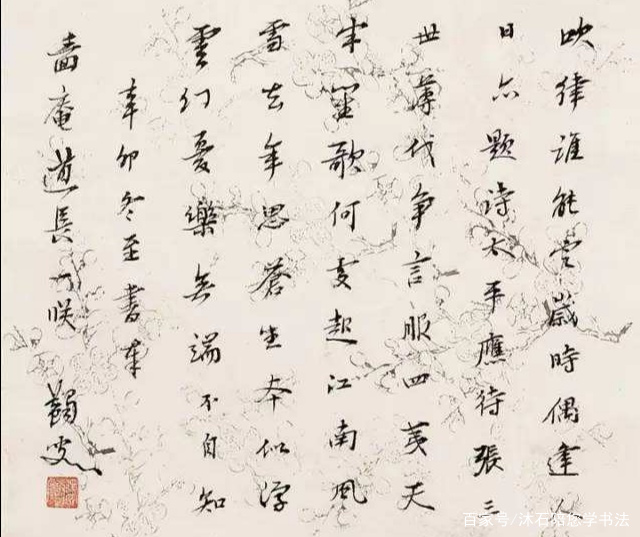 吹律誰能變歲時偶逢人
日亦題詩太平應待張三
世薄伐爭言服四夷天
半笙歌何處起江南風
雪去年思蒼生本似浮
雲幻憂樂無端不自知
辛卯冬至書奉
嗇庵道長一咲 蠲叟
百家号/沐石陪您学书法